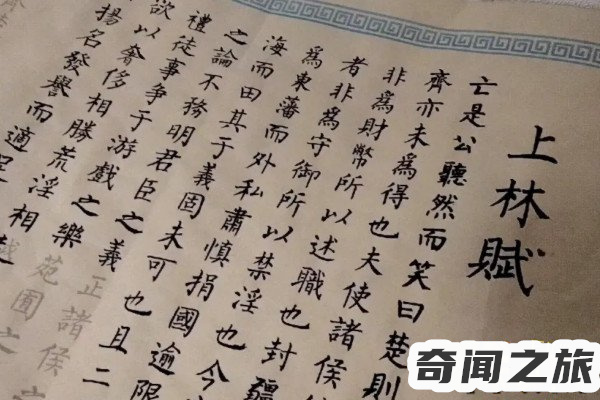 上林賦
亡是公聽然而笑曰楚則
齊亦未爲得也夫使諸侯
非爲財幣所以述職也封疆
者非爲守御所以禁淫也今
爲東藩而外私肅慎捐國逾限
海而田其于義固未可也且二
之論不務明君臣之義正諸侯
禮徒事爭于游戲之樂苑囿之
欲以奢侈相勝荒淫相越
揚名發譽而適足
奇闻之旅